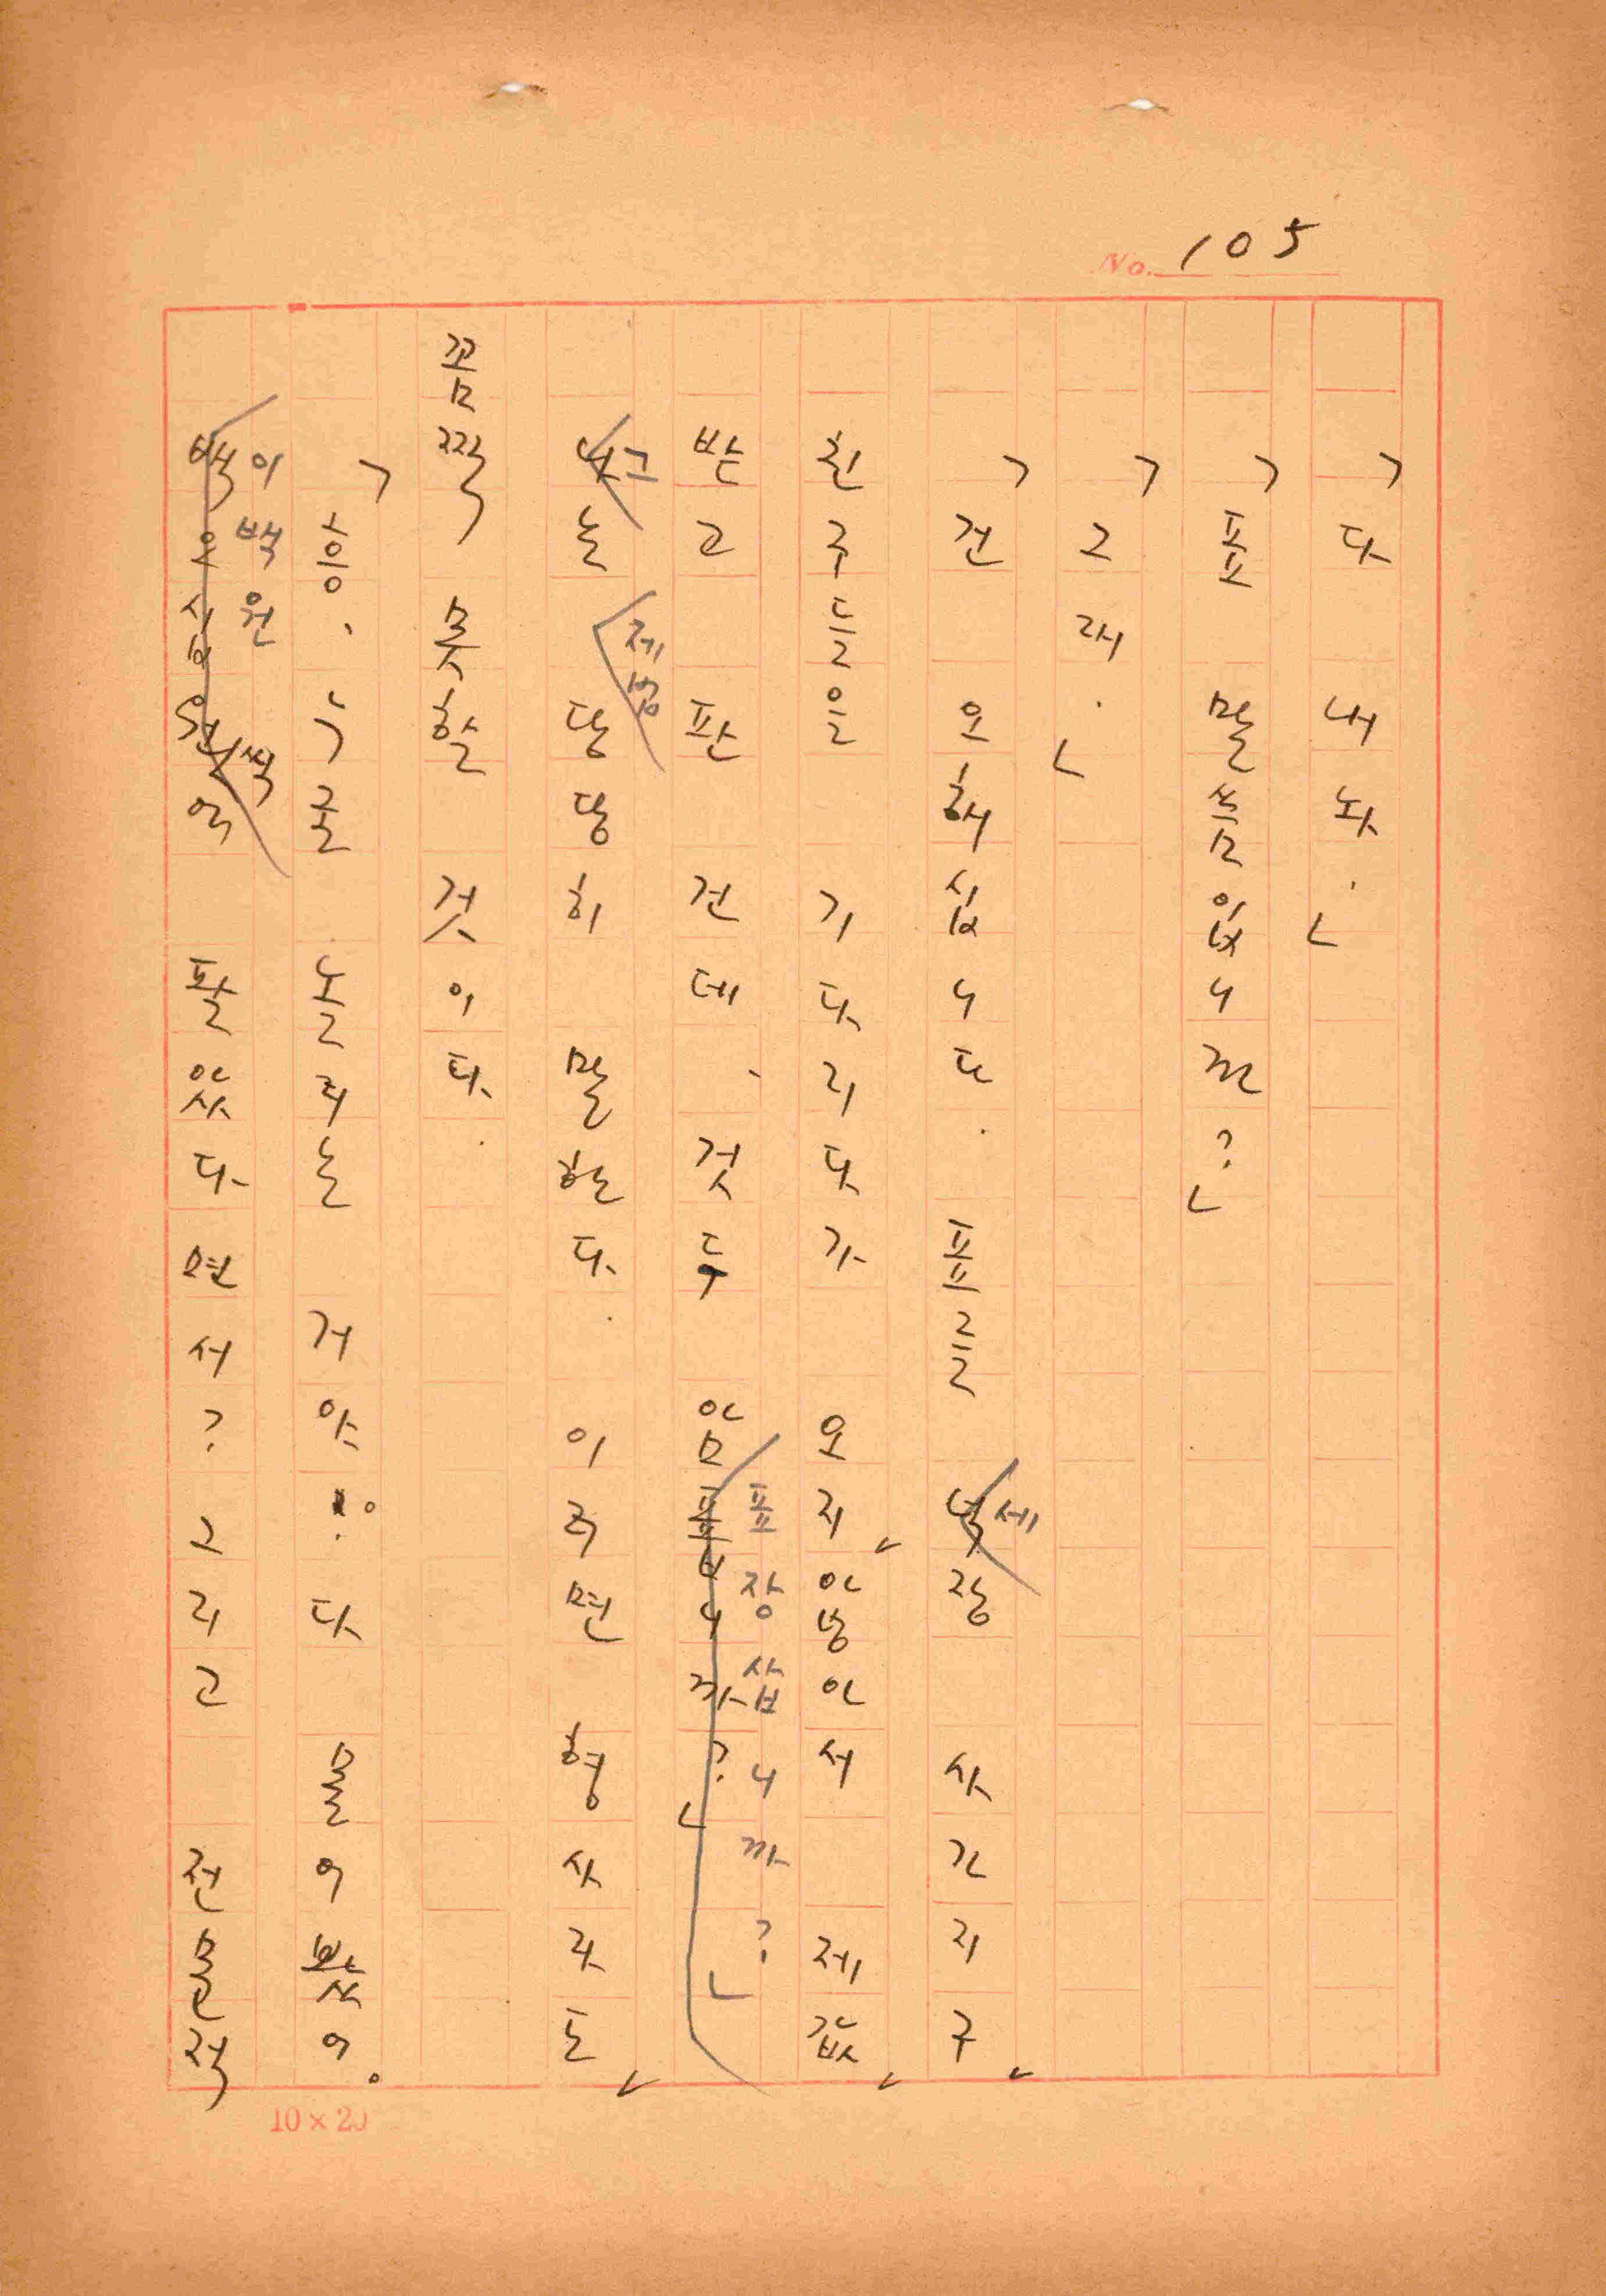 No. 105
「다 내놔.」
「표 말씀입니까?」
「그래.」
「건 오해십니다. 표를 넉세장 사가지구
친구들을 기다리다가 오지 않아서 제값
받고 판 건데, 것두 암표장삽니까?」
그는 제법 당당히 말한다. 형사라도
꼼짝 못할 것이다.
「흥, 누굴 놀리는 거야? 다 물어봤어.
이백원씩 팔았다면서? 그리고 전문적
10×20